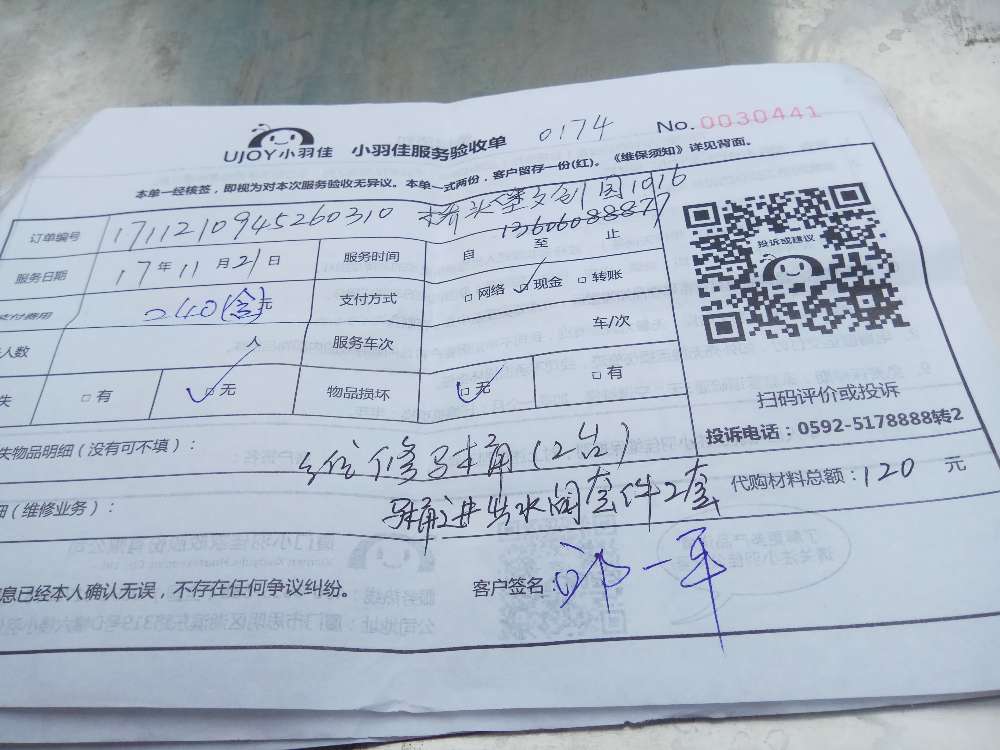 UJOY小羽佳 小羽佳服务验收单 0174 No.0030441
本单一经核签，即视为对本次服务验收无异议。本单一式两份，客户留存一份(红)。《维保须知》详见背面。
订单编号 1711210945260310 桥头堡文创园1016
13606088877
服务日期 17年11月21日 服务时间 自 至 止
支付费用 240(含)元 支付方式 □网络 ☑现金 □转账
人数 人 服务车次 车/次
失 □有 ☑无 物品损坏 ☑无 □有
投诉或建议
扫码评价或投诉
投诉电话：0592-5178888转2
失物品明细（没有可不填）：
维修马桶(2台)
细（维修业务）：
马桶进出水阀套件2套
代购材料总额：120元
息已经本人确认无误，不存在任何争议纠纷。 客户签名：